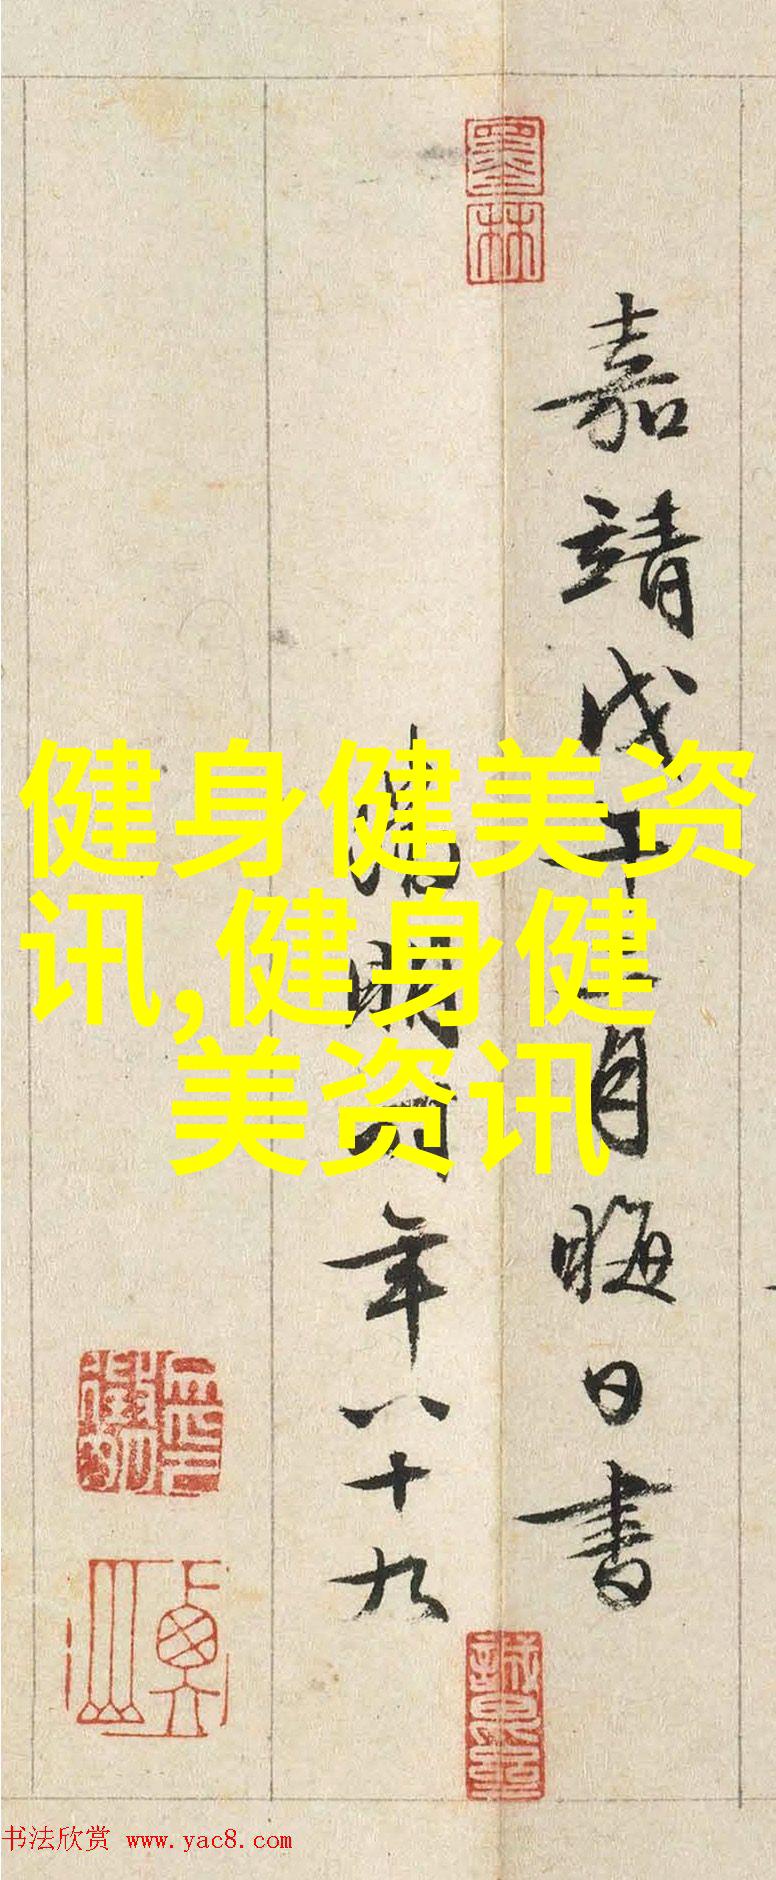 墨林
嘉靖戊午月晦日書
明年八十九
健身健美资
讯,健身健
美资讯
书法欣赏 www.yac8.com